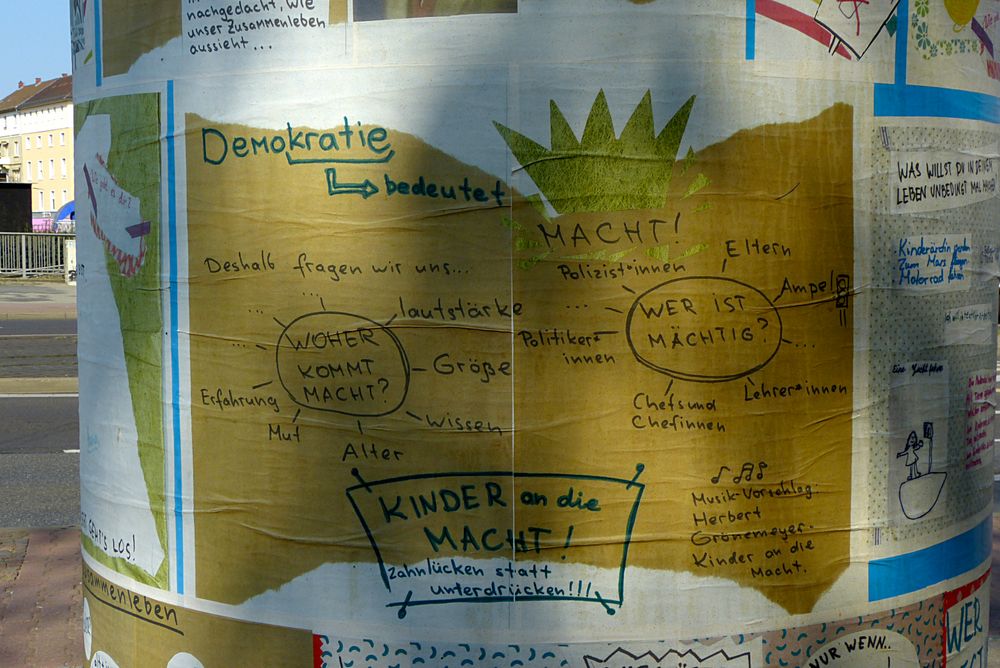 nachgedacht, wie
unser Zusammenleben
aussieht...
Demokratie
bedeutet
MACHT!
Deshalb fragen wir uns...
WOHER
KOMMT
MACHT?
...
...
lautstärke
Größe
Wissen
Alter
Mut
Erfahrung
WER IST
MÄCHTIG?
Polizist*innen
Eltern
Ampel
...
Lehrer*innen
Chefs und
Chefinnen
Politiker*
innen
...
KINDER an die
MACHT!
Zahnlücken statt
unterdrücken!!!
Musik-Vorschlag:
Herbert
Grönemeyer-
Kinder an die
Macht.
WAS WILLST DU IN DEINEM
LEBEN UNBEDINGT MAL
Kinderärztin werden
Zum Mars fliegen
Motorrad fahren
Eine Yacht fahren
GEHT'S LOS!
sammenleben
NUR WENN..
WER